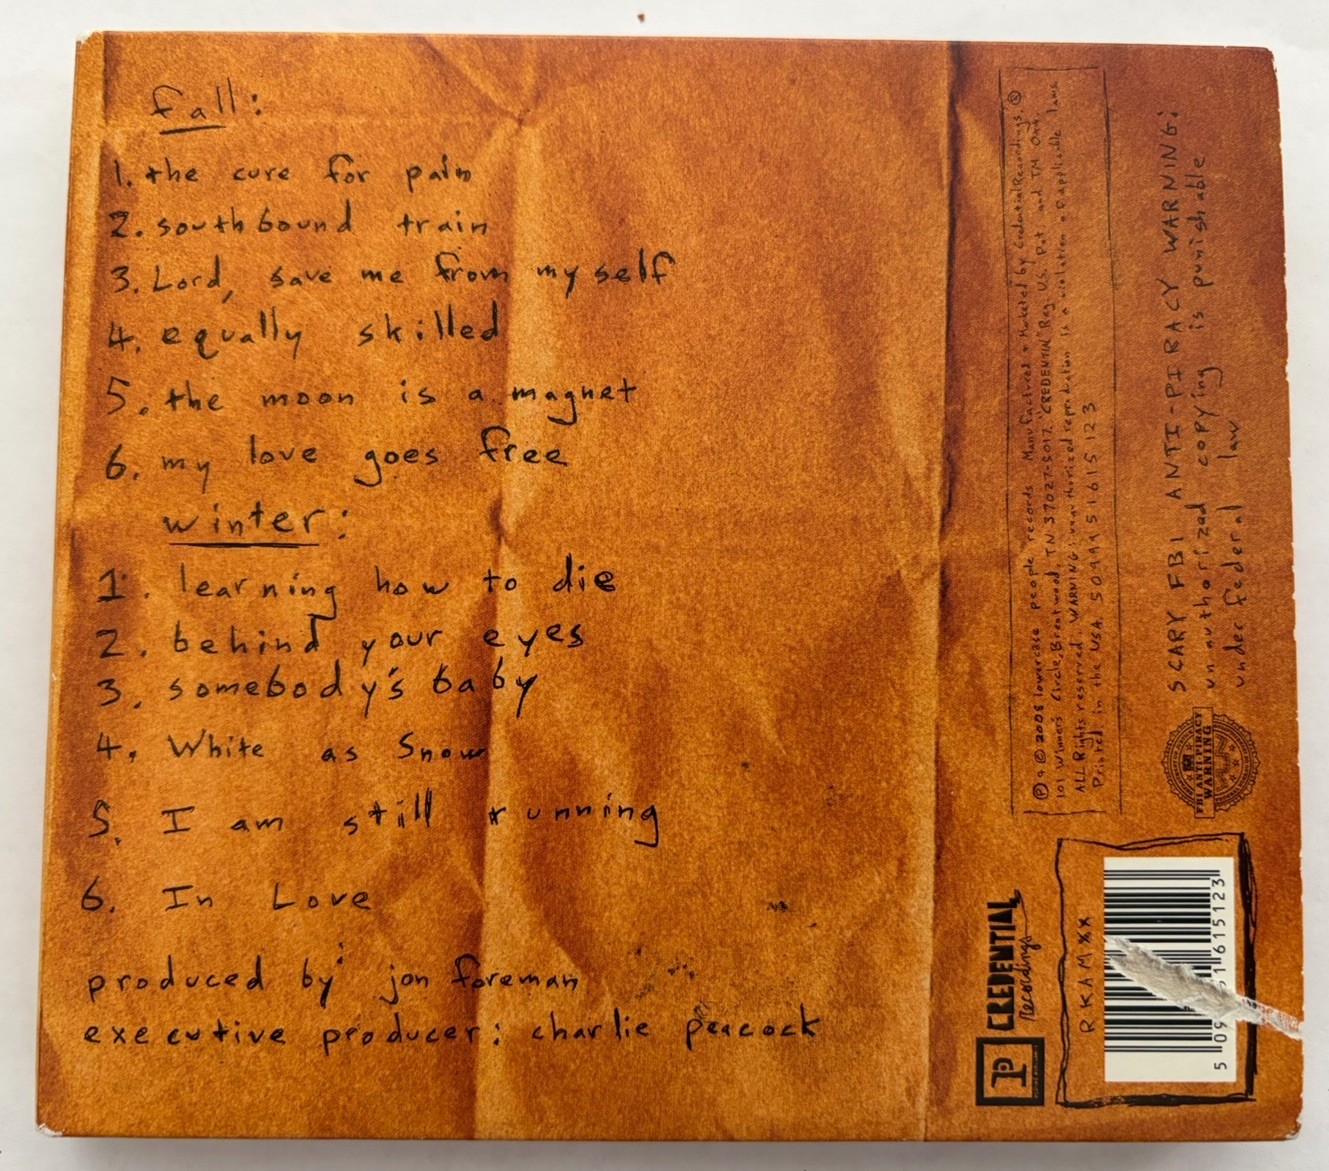 fall:
1. the cure for pain
2. southbound train
3. Lord, save me from myself
4. equally skilled
5. the moon is a magnet
6. my love goes free
winter:
1. learning how to die
2. behind your eyes
3. somebody's baby
4. White as Snow
5. I am still running
6. In Love
produced by: jon foreman
executive producer: charlie peacock
℗ & © 2008 lowercase people records. Manufactured & Marketed by Credential Recordings. ®
101 Winners Circle, Brentwood, TN 37027-5017. "CREDENTIAL" Reg. U.S. Pat. and TM Off.
ALL Rights reserved. WARNING: unauthorized reproduction is a violation of applicable laws
Printed in the USA. 5099951615123
SCARY FBI ANTI-PIRACY WARNING:
unauthorized copying is punishable
under federal law
FBI ANTI-PIRACY
WARNING
P CREDENTIAL
Recordings
RKAMXX
5 09 51 615123